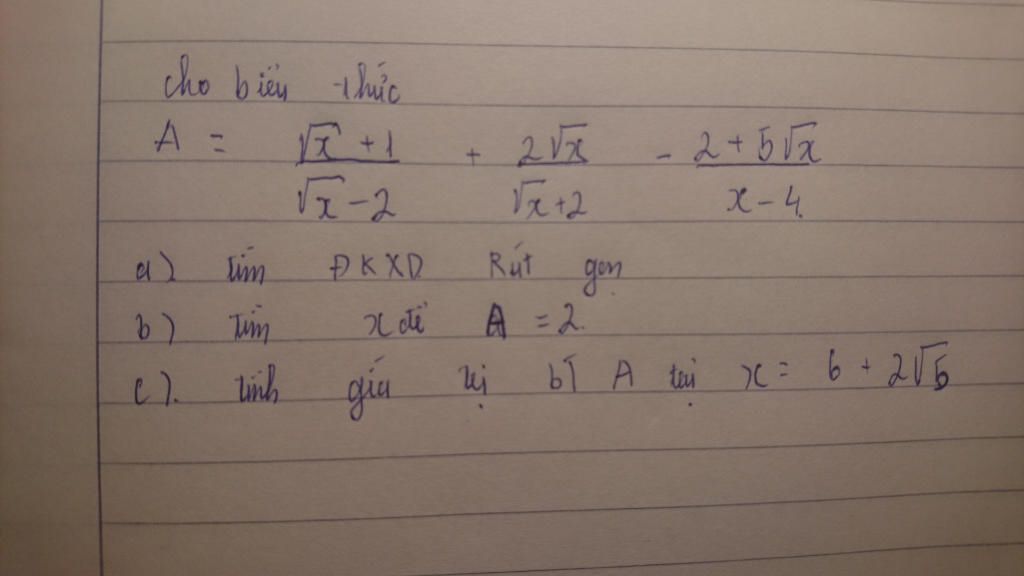 cho biểu thức
A = (√x + 1)/(√x - 2) + 2√x/(√x + 2) - (2 + 5√x)/(x - 4)
a) tìm ĐKXD Rút gọn
b) tìm x để A = 2.
c). tính giá trị bt A tại x = 6 + 2√5